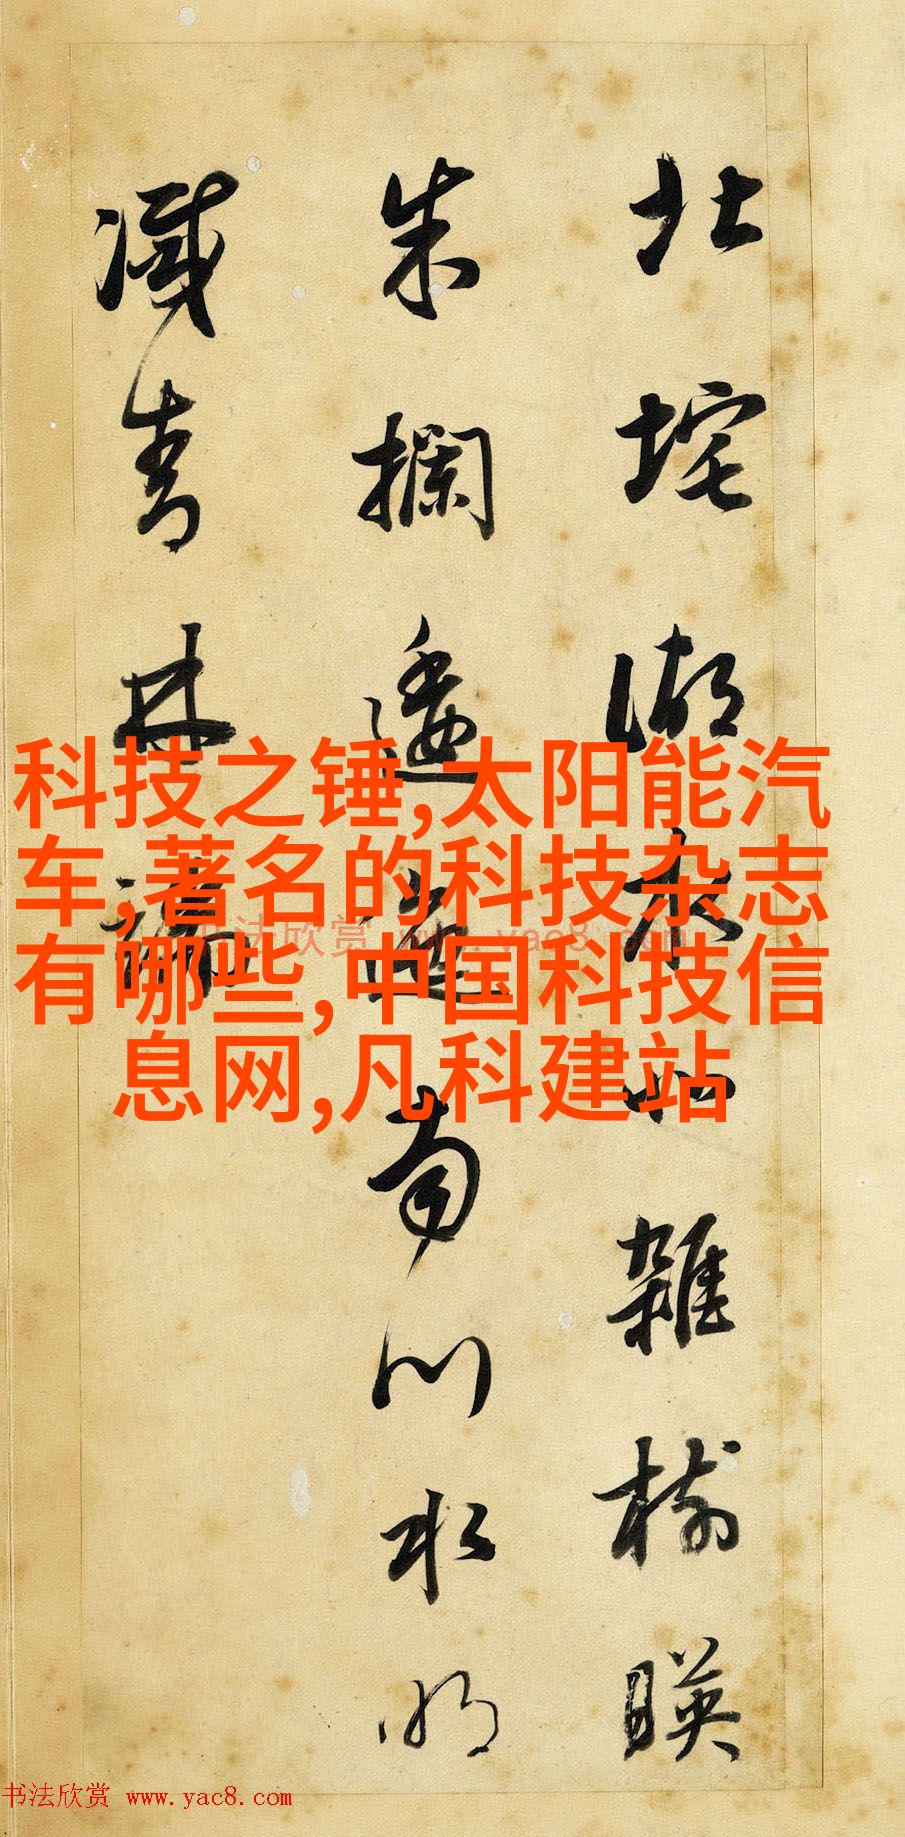 北垞湖雜樹暎
朱欄逶迤南川水明
滅青林
科技之锤,太阳能汽
车,著名的科技杂志
有哪些,中国科技信
息网,凡科建站
书法欣赏 www.yac8.com
书法欣赏 www.yac8.com